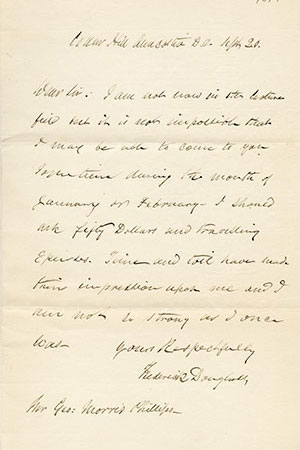 Cedar Hill Anacostia D.C. Sept. 20.
Dear Sir: I am not now in the lecture
field but it is not impossible that
I may be able to come to you
sometime during the month of
January or February. I should
ask fifty Dollars and traveling
Expenses. Time and toil have made
their impression upon me and I
am not so strong as I once
was.
Yours Respectfully
Frederick Douglass
Mr Geo: Morris Phillips.